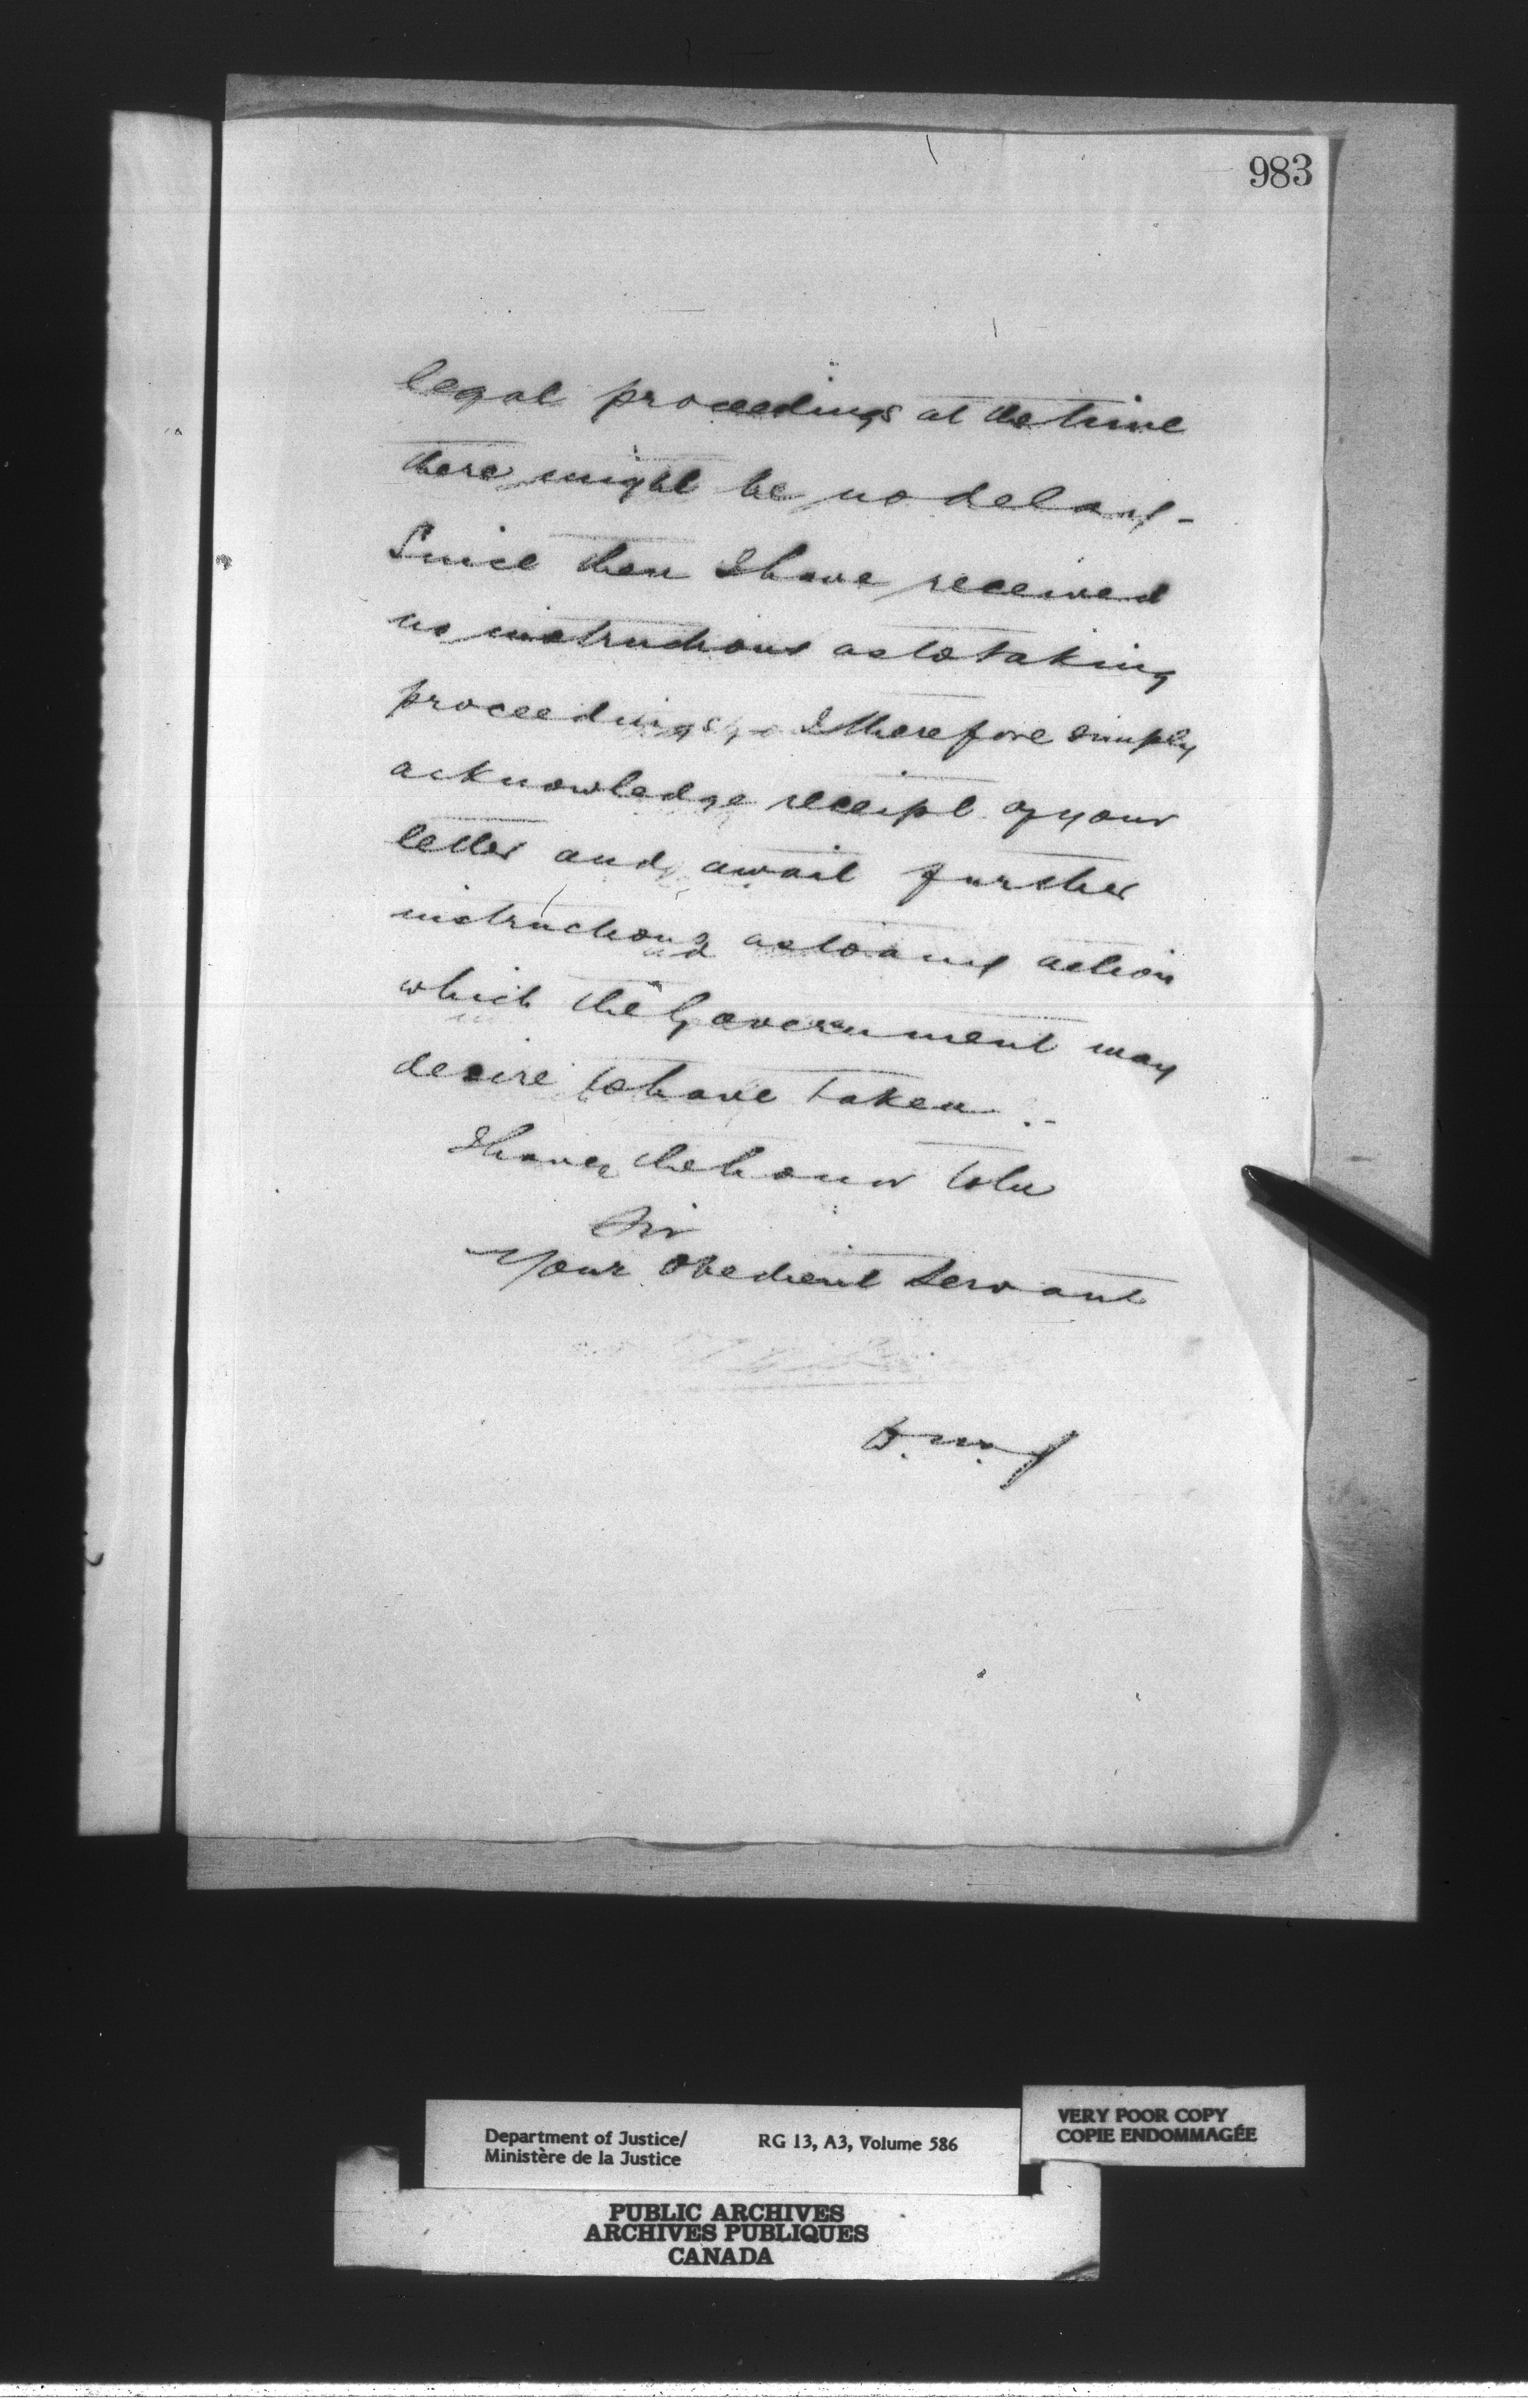 983
legal proceedings at the time
there might be no delay -
Since then I have received
no instructions as to taking
proceedings, I therefore simply
acknowledge receipt of your
letter and await further
instructions as to any action
which the Government may
desire to have taken. -
I have the honor to be
Sir
Your Obedient Servant
Department of Justice/
Ministère de la Justice
RG 13, A3, Volume 586
VERY POOR COPY
COPIE ENDOMMAGÉE
PUBLIC ARCHIVES
ARCHIVES PUBLIQUES
CANADA